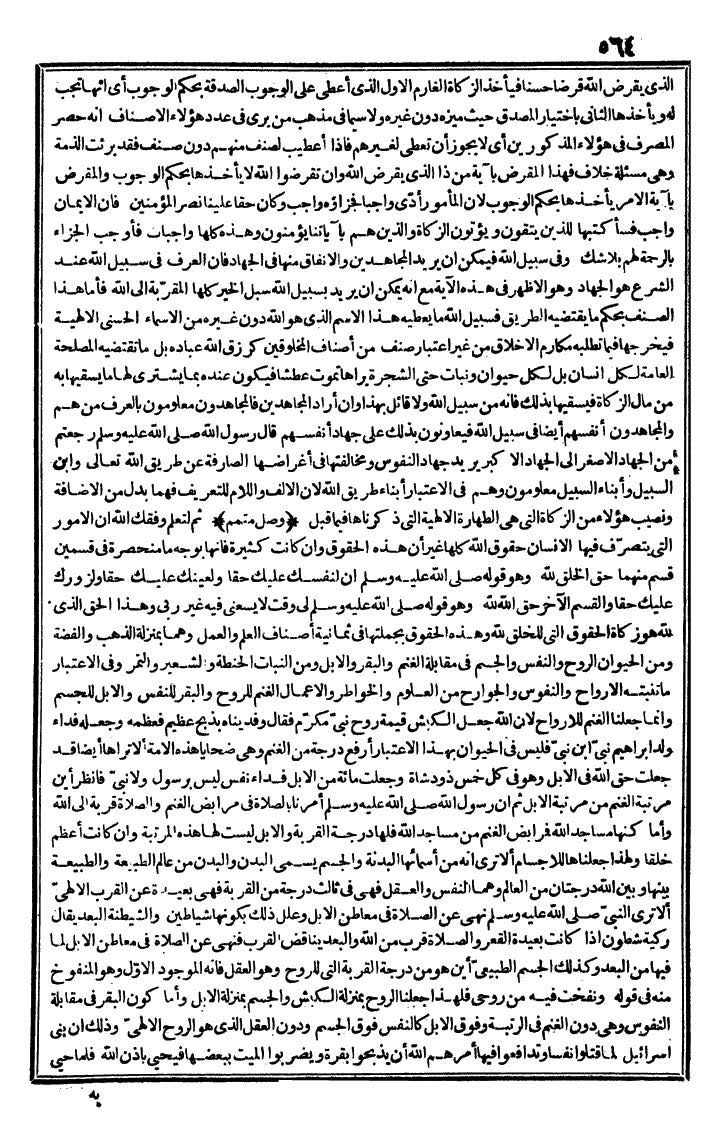 ٥٦٤
الذى يقرض الله قرضا حسنا فيأخذ الزكاة الغارم الاول الذى أعطى على الوجوب الصدقة بحكم الوجوب أى انها تجب
له ويأخذها الثانى باختيار المصدق حيث ميزه دون غيره ولا سيما فى مذهب من يرى فى عدد هؤلاء الاصناف انه حصر
المصرف فى هؤلاء المذكورين أى لا يجوز أن تعطى لغيرهم فاذا أعطيت لصنف منهم دون صنف فقد برئت الذمة
وهى مسئلة خلاف فهذا المقرض بآية من ذا الذى يقرض الله وان تقرضوا الله لا يأخذها بحكم الوجوب والمقرض
بآية الامر يأخذها بحكم الوجوب لان المأمور أدّى واجبا فجزاؤه واجب وكان حقا علينا نصر المؤمنين فان الايمان
واجب فسأكتبها للذين يتقون ويؤتون الزكاة والذين هم بآياتنا يؤمنون وهذه كلها واجبات فأوجب الجزاء
بالرحة لهم بلا شك وفى سبيل الله فيمكن ان يريد المجاهدين والانفاق منها فى الجهاد فان العرف فى سبيل الله عند
الشرع هو الجهاد وهو الاظهر فى هذه الآية مع انه يمكن ان يريد بسبيل الله سبل الخير كلها المقرّبة الى الله فأما هذا
الصنف بحكم ما يقتضيه الطريق فسبيل الله ما يعطيه هذا الاسم الذى هو الله دون غيره من الاسماء الحسنى الالهية
فيخرجها فيما تطلبه مكارم الاخلاق من غير اعتبار صنف من أصناف المخلوقين كرزق الله عباده بل ما تقتضيه المصلحة
العامة لكل انسان بل لكل حيوان ونبات حتى الشجرة يراها تموت عطشا فيكون عنده بما يشترى لها ما يسقيها به
من مال الزكاة فيسقيها بذلك فانه من سبيل الله ولا قائل بهذا وان أراد المجاهدين فالمجاهدون معلومون بالعرف من هم
والمجاهدون أنفسهم أيضا فى سبيل الله فيعاونون بذلك على جهاد أنفسهم قال رسول الله صلى الله عليه وسلم رجعتم
من الجهاد الاصغر الى الجهاد الاكبر يريد جهاد النفوس ومخالفتها فى أغراضها الصارفة عن طريق الله تعالى وابن
السبيل وأبناء السبيل معلومون وهم فى الاعتبار أبناء طريق الله لان الالف واللام للتعريف فهما بدل من الاضافة
ونصيب هؤلاء من الزكاة التى هى الطهارة الالهية التى ذكرناها فيما قبل ﴿وصل متمم﴾ ثم لتعلم وفقك الله ان الامور
التى يتصرّف فيها الانسان حقوق الله كلها غير أن هذه الحقوق وان كانت كثيرة فانها بوجه ما منحصرة فى قسمين
قسم منهما حق الخلق لله وهو قوله صلى الله عليه وسلم ان لنفسك عليك حقا ولعينك عليك حقا ولزورك
عليك حقا والقسم الآخر حق الله لله وهو قوله صلى الله عليه وسلم لى وقت لا يسعنى فيه غير ربى وهذا الحق الذى
لله هو زكاة الحقوق التى للخلق لله وهذه الحقوق بجملتها فى ثمانية أصناف العلم والعمل وهما بمنزلة الذهب والفضة
ومن الحيوان الروح والنفس والجسم فى مقابلة الغنم والبقر والابل ومن النبات الحنطة والشعير والتمر وفى الاعتبار
ما تنبته الارواح والنفوس والجوارح من العلوم والخواطر والاعمال الغنم للروح والبقر للنفس والابل للجسم
وانما جعلنا الغنم للارواح لان الله جعل الكبش قيمة روح نبىّ مكرّم فقال وفديناه بذبح عظيم فعظمه وجعله فداء
ولد ابراهيم نبىّ ابن نبىّ فليس فى الحيوان بهذا الاعتبار أرفع درجة من الغنم وهى ضحايا هذه الامة ألا تراها أيضا قد
جعلت حق الله فى الابل وهو فى كل خمس ذود شاة وجعلت مائة من الابل فداء نفس ليس برسول ولا نبىّ فانظر أين
مرتبة الغنم من مرتبة الابل ثم ان رسول الله صلى الله عليه وسلم أمرنا بالصلاة فى مرابض الغنم والصلاة قربة الى الله
وأما كنها مساجد الله فرابض الغنم من مساجد الله فلها درجة القربة والابل ليست لها هذه المرتبة وان كانت أعظم
خلقا ولهذا جعلناها للاجسام ألا ترى انه من أسمائها البدنة والجسم يسمى البدن والبدن من عالم الطبيعة والطبيعة
بينها وبين الله درجتان من العالم وهما النفس والعقل فهى فى ثالث درجة من القربة فهى بعيدة عن القرب الالهىّ
ألا ترى النبىّ صلى الله عليه وسلم نهى عن الصلاة فى معاطن الابل وعلل ذلك بكونها شياطين والشيطنة البعد يقال
ركية شطون اذا كانت بعيدة القعر والصلاة قرب من الله والبعد يناقض القرب فنهى عن الصلاة فى معاطن الابل لما
فيها من البعد وكذلك الجسم الطبيعىّ أين هو من درجة القربة التى للروح وهو العقل فانه الموجود الاوّل وهو المنفوخ
منه فى قوله ونفخت فيه من روحى فلهذا جعلنا الروح بمنزلة الكبش والجسم بمنزلة الابل وأما كون البقر فى مقابلة
النفوس وهى دون الغنم فى الرتبة وفوق الابل كالنفس فوق الجسم ودون العقل الذى هو الروح الالهىّ وذلك ان بنى
اسرائيل لما قتلوا نفسا وتدافعوا فيها أمرهم الله أن يذبحوا بقرة ويضربوا الميت ببعضها فيحيى باذن الله فلما حيى
به